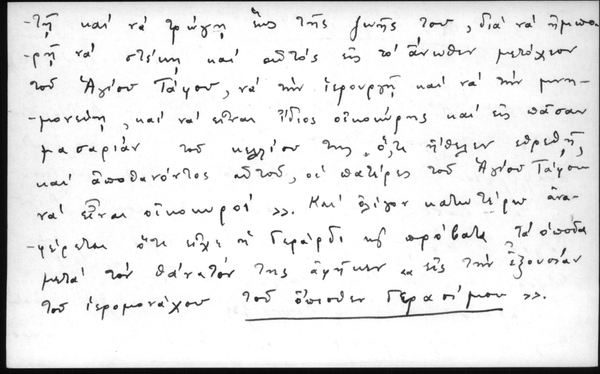 -τῇ καὶ νὰ τρώγῃ ἕως τῆς ζωῆς του, διὰ νὰ ἠμπο-
-ρῇ νὰ στέκῃ καὶ αὐτὸς εἰς τὸ ἄνωθεν μετόχιον
τοῦ Ἁγίου Τάφου, νὰ τὴν ἱερουργῇ καὶ νὰ τὴν μνη-
-μονεύῃ, καὶ νὰ εἶναι ἴδιος οἰκοκύρης καὶ εἰς πᾶσαν
μασαρίαν τοῦ κελλίου της, ὅ,τι ἤθελεν εὑρεθῇ,
καὶ ἀποθανόντος αὐτοῦ, οἱ πατέρες τοῦ Ἁγίου Τάφου
νὰ εἶναι οἰκοκυροὶ >>. Καὶ ὀλίγον κατωτέρω ἀνα-
-φέρεται ὅτι εἶχε ἡ Γεράρδι πρόβατα, τὰ ὁποῖα
μετὰ τὸν θάνατόν της ἀφῆκεν << εἰς τὴν ἐξουσίαν
τοῦ ἱερομονάχου τοῦ ὄπισθεν Γερασίμου >>.